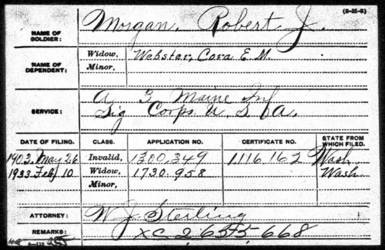 (3-25-5)
NAME OF SOLDIER: Morgan, Robert J.
NAME OF DEPENDENT: Widow, Webster, Cora E. M.
Minor,
SERVICE: A 3 Maine Inf
Sig Corps U.S.A.
DATE OF FILING. CLASS. APPLICATION NO. CERTIFICATE NO. STATE FROM WHICH FILED.
1903, May 26 Invalid, 1300,349 1,116,162 Wash.
1933 Feb 10 Widow, 1730,958 Wash
Minor,
ATTORNEY: W. J. Sterling
REMARKS: XC 2655,668